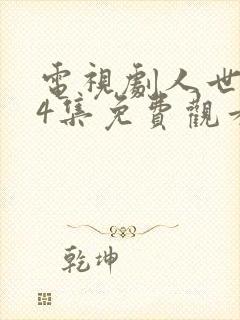 電視劇人世
4集免費觀
乾坤